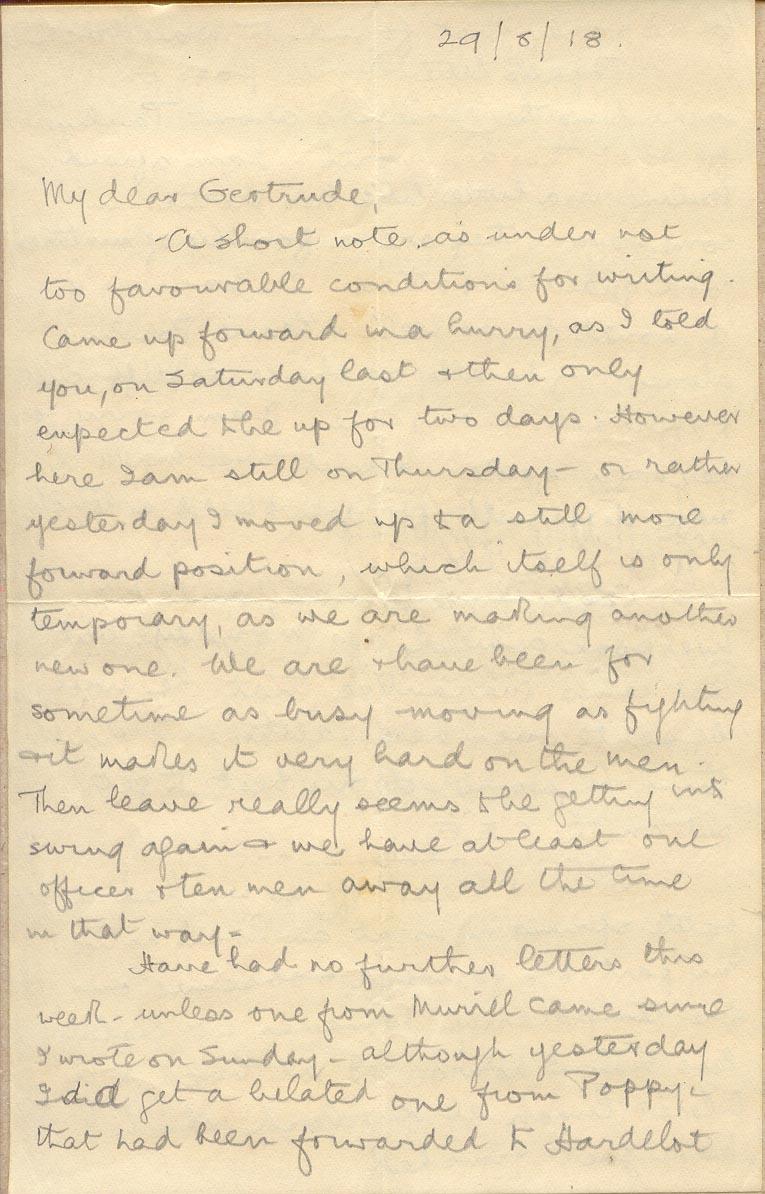 29/8/18.
My dear Gertrude,
A short note, as under not
too favourable conditions for writing.
Came up forward in a hurry, as I told
you, on Saturday last & then only
expected to be up for two days. However
here I am still on Thursday - or rather
yesterday I moved up to a still more
forward position, which itself is only
temporary, as we are making another
new one. We are & have been for
sometime as busy moving as fighting
& it makes it very hard on the men.
Then leave really seems to be getting into
swing again & we have at least one
officer & ten men away all the time
in that way -
Have had no further letters this
week - unless one from Muriel came since
I wrote on Sunday - although yesterday
I did get a belated one from Poppy -
that had been forwarded to Hardelot